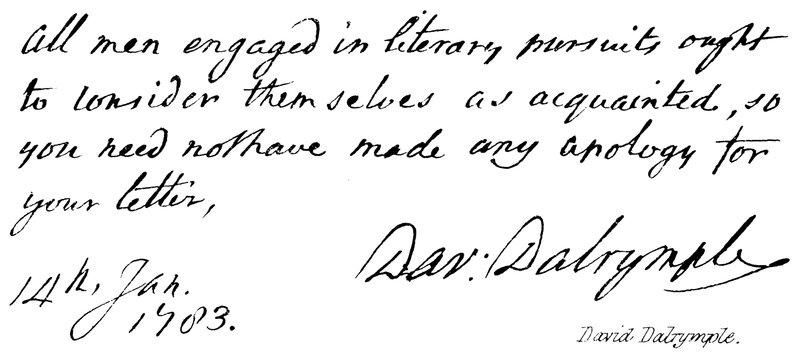 all men engaged in literary pursuits ought
to consider themselves as acquainted, so
you need not have made any apology for
your letter,
Dav: Dalrymple
14th, Jan.
1783.
David Dalrymple.